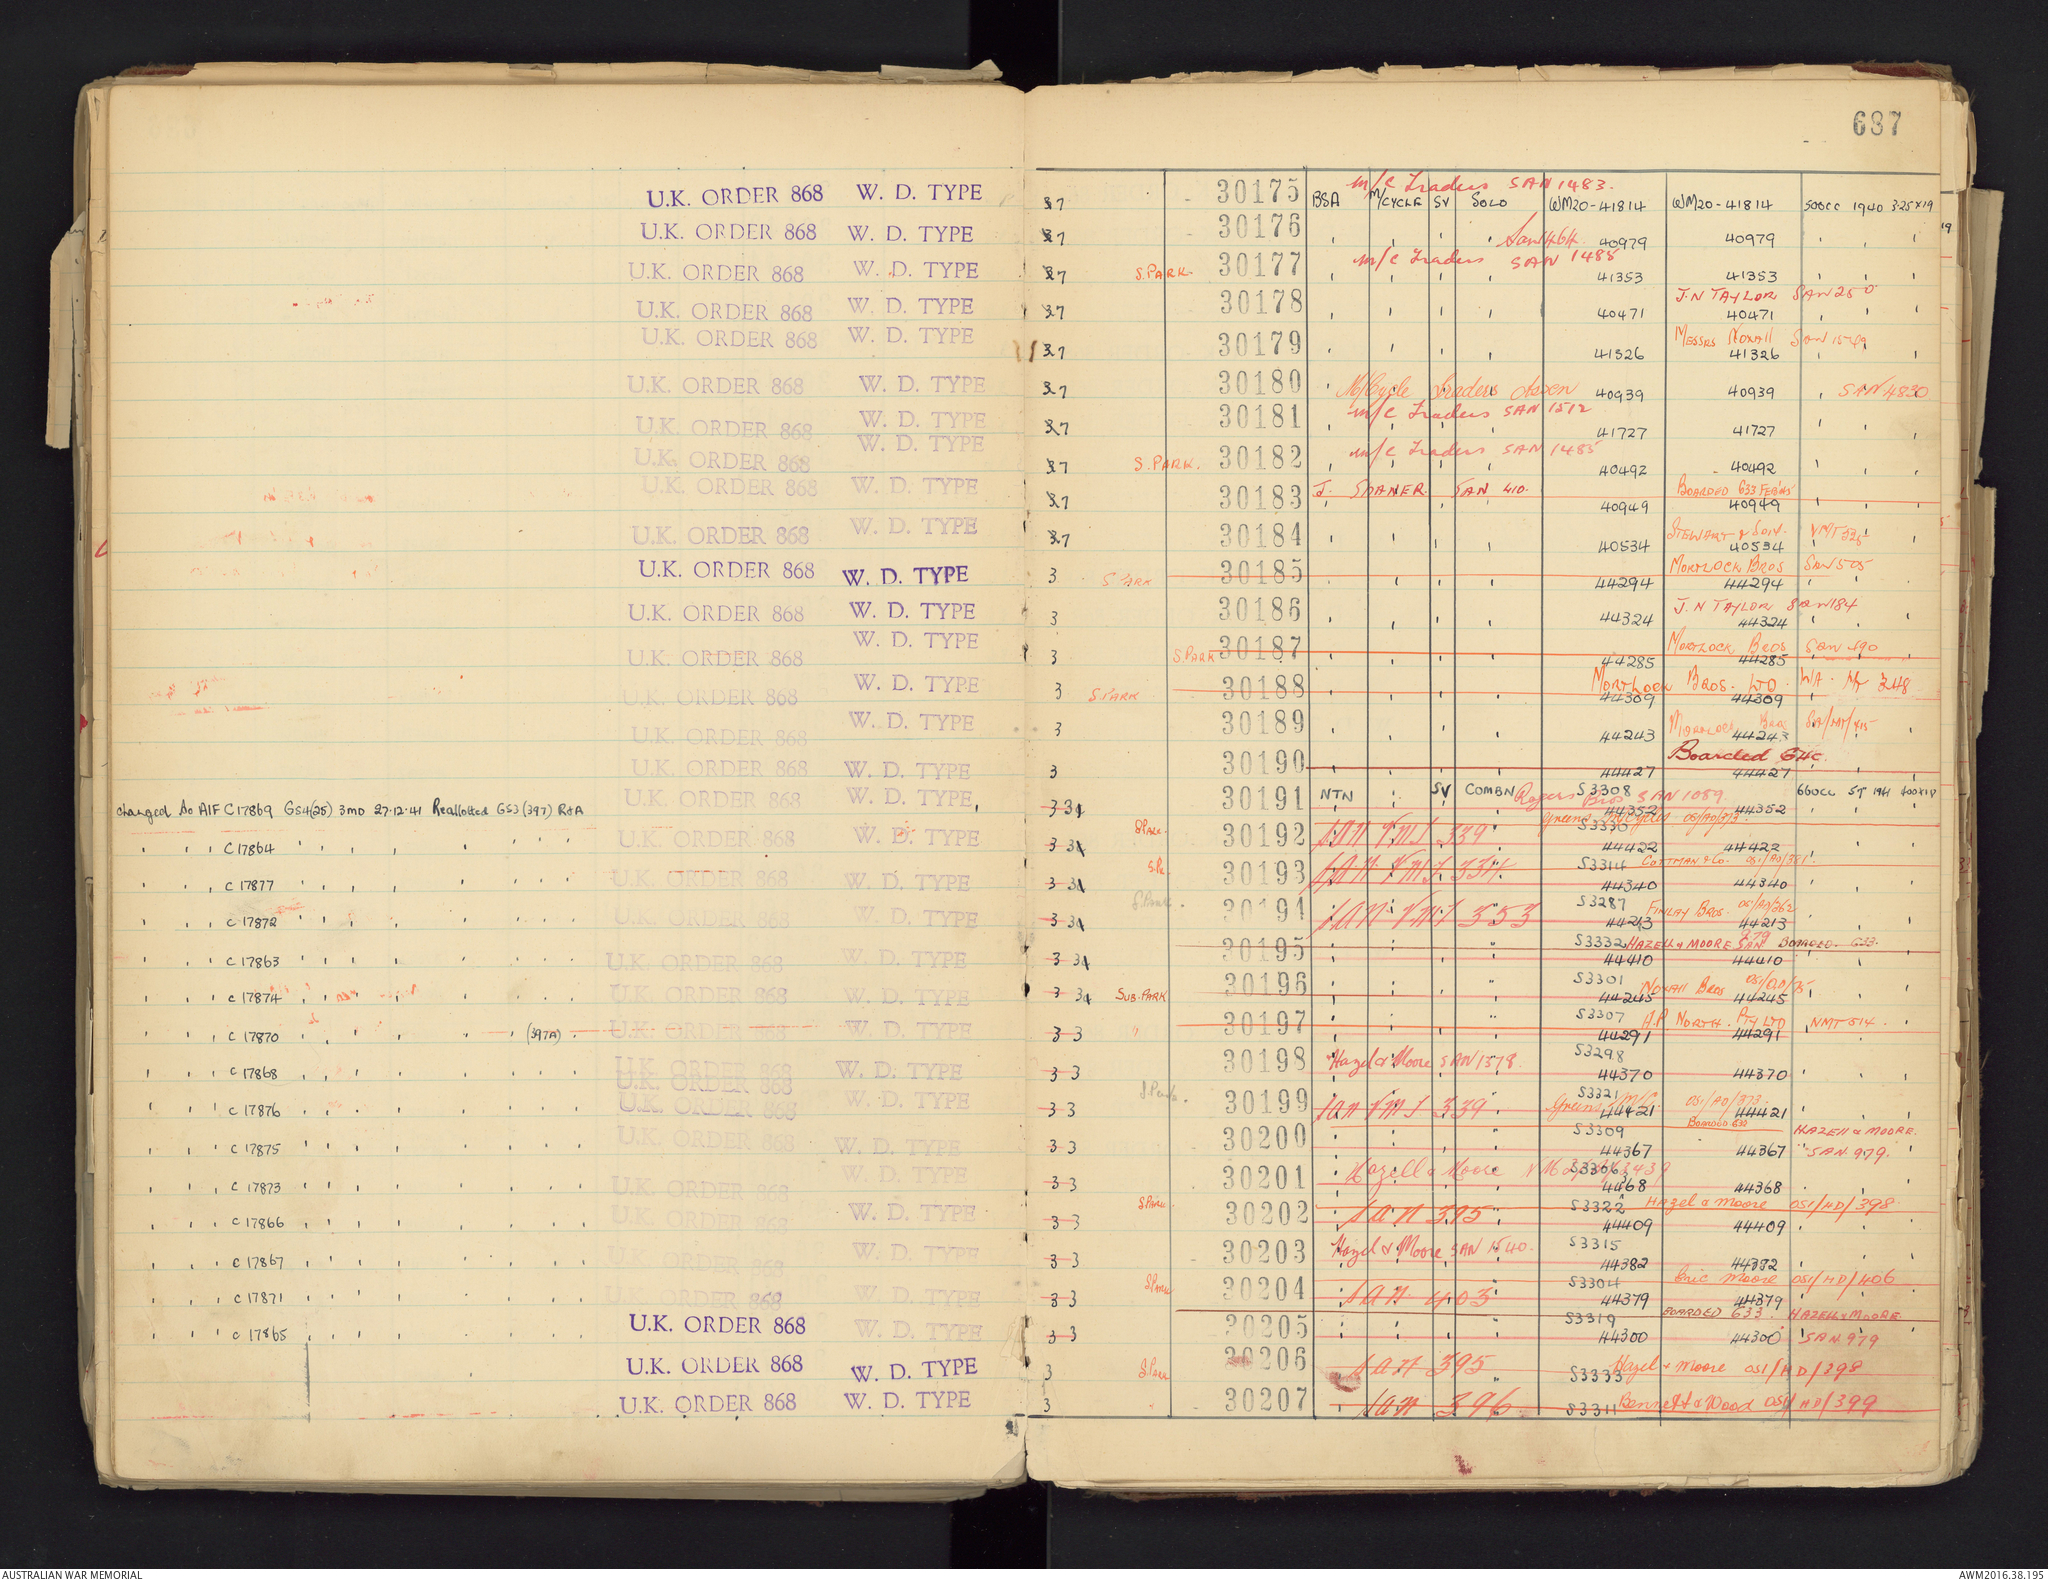 687
U.K. ORDER 868 W. D. TYPE 37 30175 BSA M/CYCLE SV SOLO WM20-41814 WM20-41814 500CC 1940 3.25x19 m/c Traders SAN 1483.
U.K. ORDER 868 W. D. TYPE 37 30176 40979 40979
U.K. ORDER 868 W. D. TYPE 37 S.PARK. 30177 m/c Traders SAN 1485 41353 41353
U.K. ORDER 868 W. D. TYPE 37 30178 40471 40471 J.N TAYLOR SAN 250
U.K. ORDER 868 W. D. TYPE 37 30179 41326 41326 MESSRS NOXALL SAN
U.K. ORDER 868 W. D. TYPE 37 30180 M/Cycle Traders 40939 40939 SAN 4830
U.K. ORDER 868 W. D. TYPE 37 30181 m/c Traders SAN 1512 41727 41727
U.K. ORDER 868 W. D. TYPE 37 S.PARK. 30182 m/c Traders SAN 1485 40492 40492
U.K. ORDER 868 W. D. TYPE 37 30183 J. SAN 410. 40949 40949 BOARDED G33
U.K. ORDER 868 W. D. TYPE 37 30184 40534 40534 STEWART & SON.
U.K. ORDER 868 W. D. TYPE 3 S PARK 30185 44294 44294 MORTLOCK BROS SAN 505
U.K. ORDER 868 W. D. TYPE 3 30186 44324 44324 J.N TAYLOR SAN 184
U.K. ORDER 868 W. D. TYPE 3 S.PARK 30187 44285 44285 MORTLOCK BROS SAN 590
U.K. ORDER 868 W. D. TYPE 3 S.PARK 30188 44309 44309 MORTLOCK BROS. LTD. WA. 348
U.K. ORDER 868 W. D. TYPE 3 30189 44243 44243 MORTLOCK Bros
U.K. ORDER 868 W. D. TYPE 3 30190 44427 44427 Boarded
changed to AIF C17869 GS4(25) 3MD 27.12.41 Reallotted GS3 (397) R&A U.K. ORDER 868 W. D. TYPE 3 30191 NTN SV COMBN S3308 44352 44352 Rogers Bros SAN 1089 660CC
C17864 U.K. ORDER 868 W. D. TYPE 3 S PARK. 30192 SAN VMS 339 S3330 44422 44422
C17877 U.K. ORDER 868 W. D. TYPE 3 30193 SAN VMS 334 S3314 44340 44340 COTTMAN & Co. OSI/AD/381
C17872 U.K. ORDER 868 W. D. TYPE 3 S.Park. 30194 SAN VMS 353 S3287 44213 44213 FINLAY BROS. OSI/AD/362
C17863 U.K. ORDER 868 W. D. TYPE 3 30195 S3332 44410 44410 HAZELL & MOORE SAN 979 BOARDED. G33.
C17874 U.K. ORDER 868 W. D. TYPE 3 SUB.PARK 30196 S3301 44245 44245 NOXALL Bros
C17870 (397A) U.K. ORDER 868 W. D. TYPE 3 3 " 30197 S3307 44291 44291 A.P NORTH. PTY LTD NMT 514.
C17868 U.K. ORDER 868 W. D. TYPE 3 3 30198 Hazel & Moore SAN 1578. S3298 44370 44370
C17876 U.K. ORDER 868 W. D. TYPE 3 3 S.Park. 30199 SAN VMS 339 S3321 44421 44421 Greens M/C. OSI/AD/373.
C17875 U.K. ORDER 868 W. D. TYPE 3 3 30200 S3309 44367 44367 BOARDED G33 HAZELL & MOORE. SAN. 979.
C17873 U.K. ORDER 868 W. D. TYPE 3 3 30201 Hazell & Moore S3306 4468 44368
C17866 U.K. ORDER 868 W. D. TYPE 3 3 S PARK 30202 SAN 395 S3322 44409 44409 Hazel & Moore OSI/HD/398
C17867 U.K. ORDER 868 W. D. TYPE 3 3 30203 Hazel & Moore SAN 1540. S3315 44382 44382
C17871 U.K. ORDER 868 W. D. TYPE 3 3 S PARK 30204 SAN 403 S3304 44379 44379 Eric Moore OSI/HD/406
C17865 U.K. ORDER 868 W. D. TYPE 3 3 30205 S3319 44300 44300 BOARDED G33. HAZELL & MOORE. SAN 979
U.K. ORDER 868 W. D. TYPE 3 S PARK 30206 SAN 395 S3333 Hazel & Moore OSI/HD/398
U.K. ORDER 868 W. D. TYPE 3 " 30207 SAN 396 S3311 Bennett & Wood OSI/HD/399
AUSTRALIAN WAR MEMORIAL AWM2016.38.195